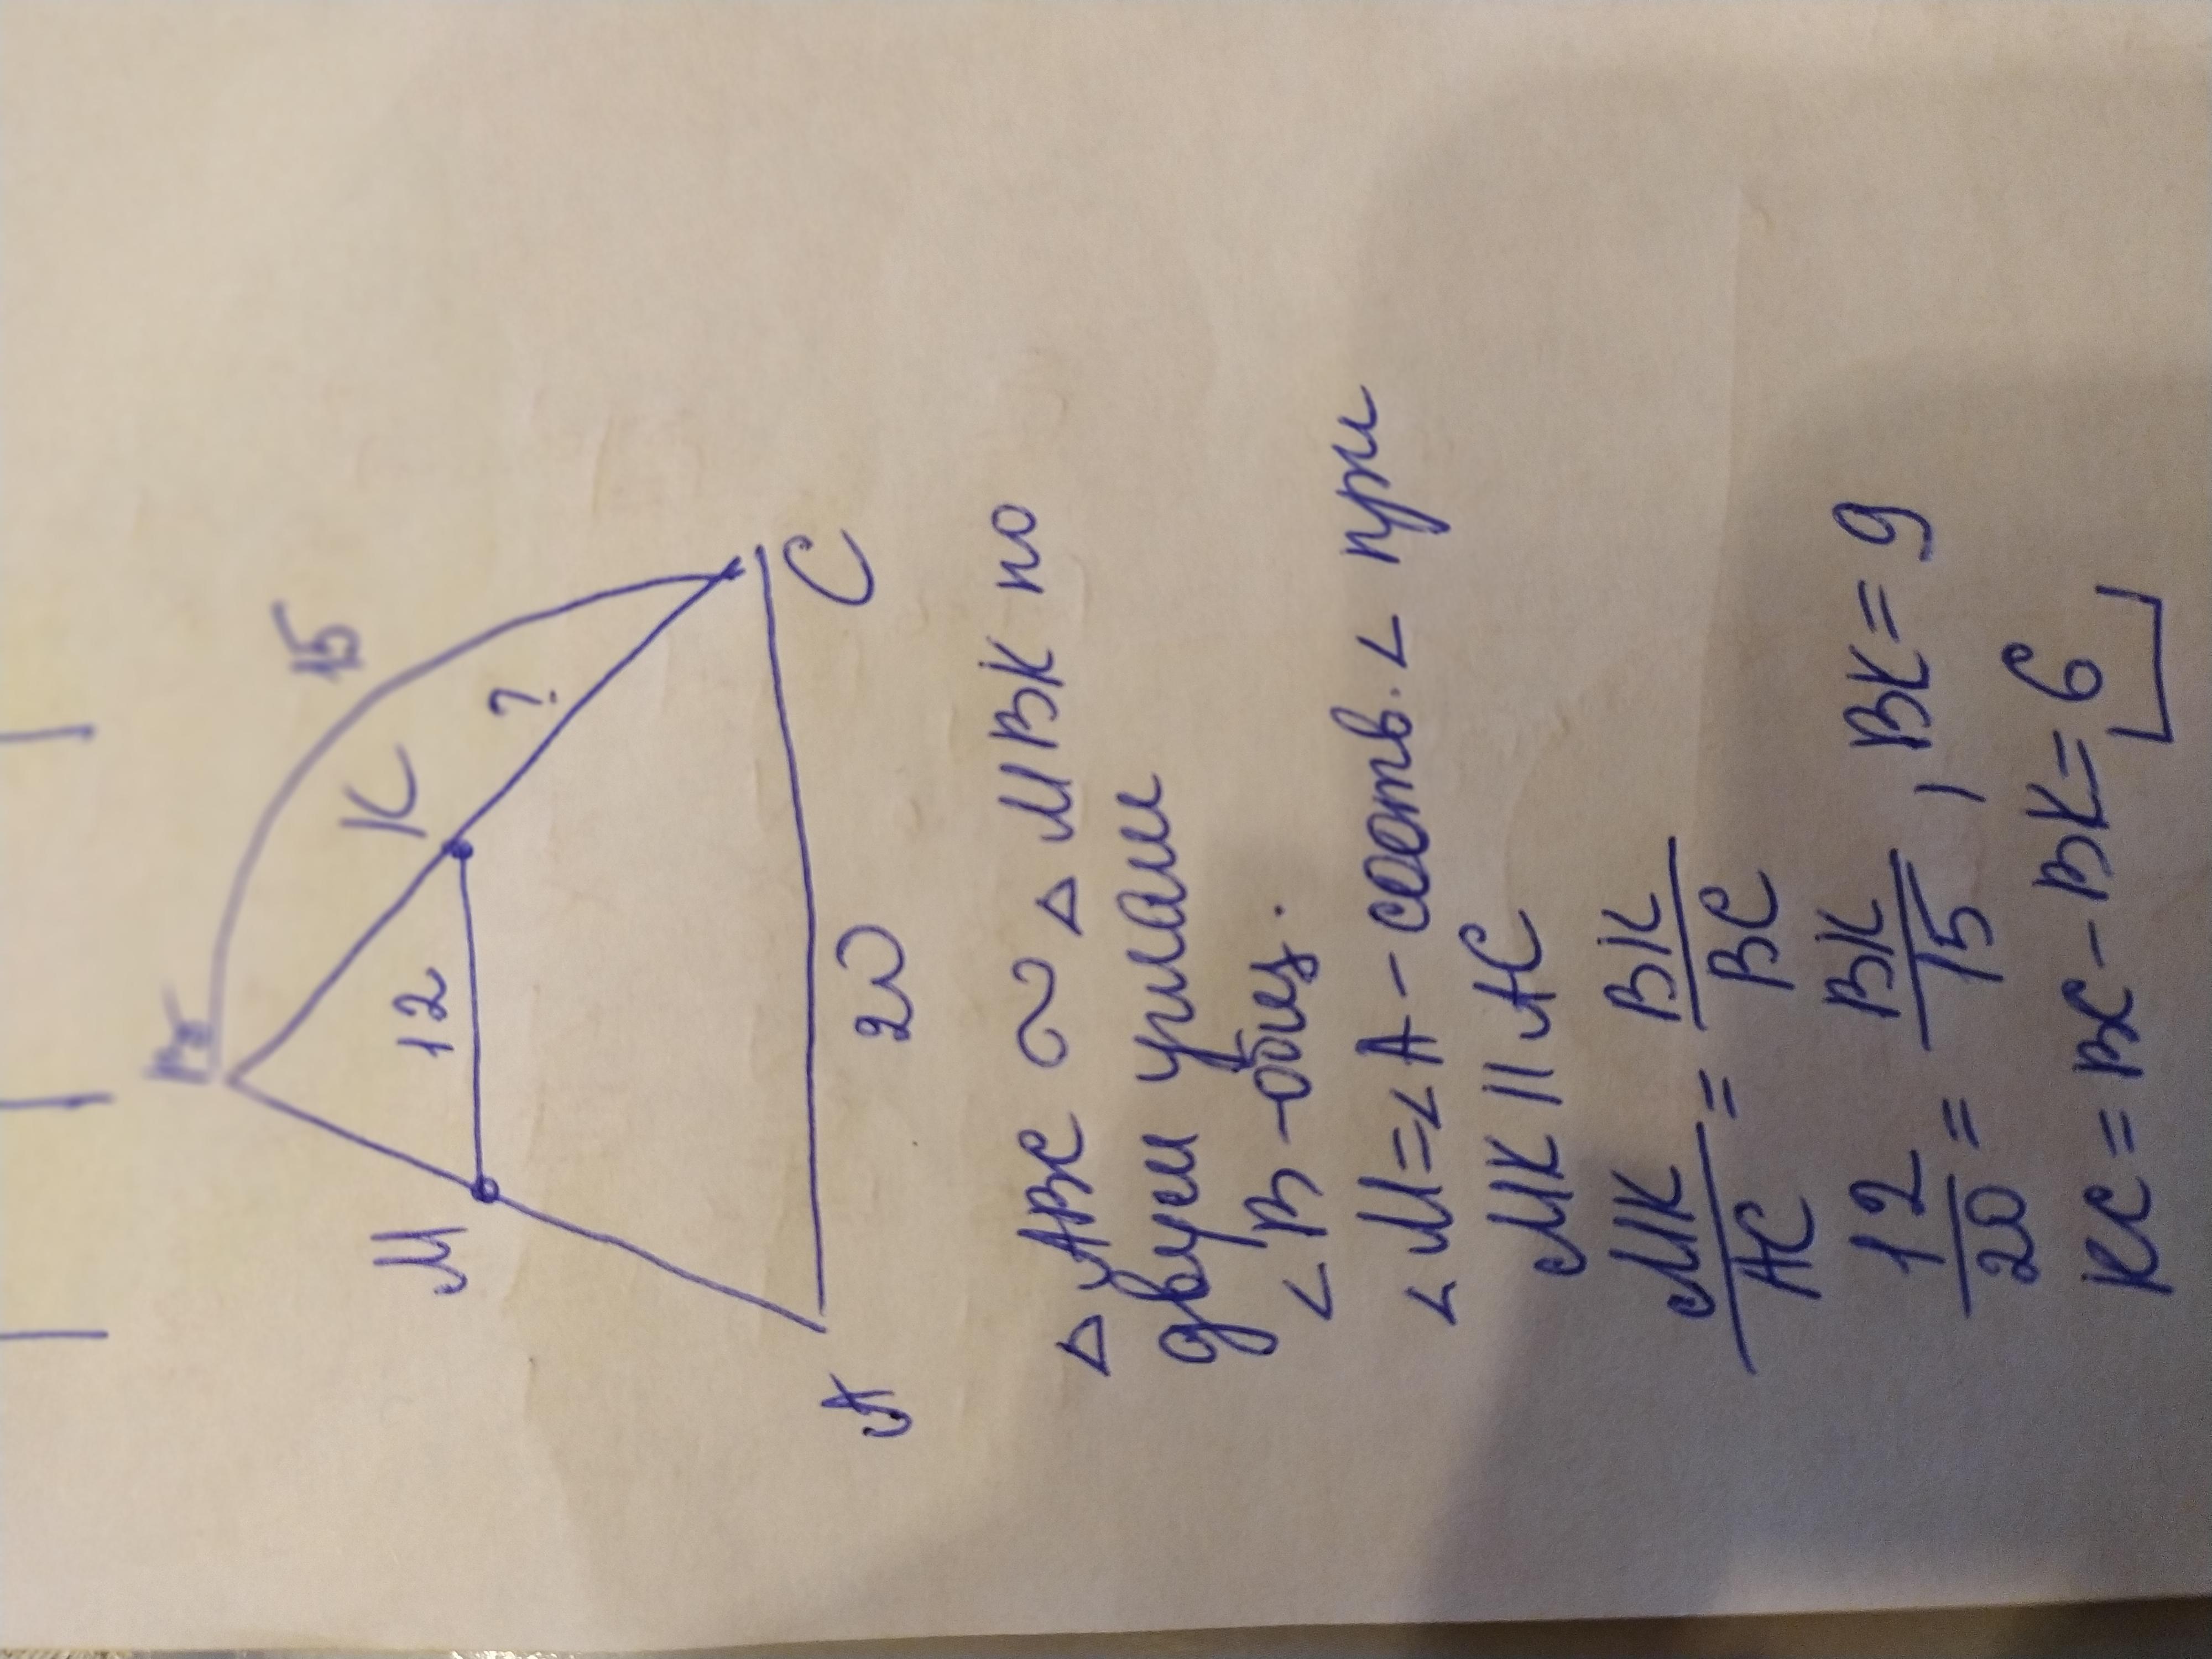 В
15
М
12
К
?
А
20
С
△ ABC ∾ △ MBK по
двум углам
∠B - общ.
∠M = ∠A - соотв. ∠ при
MK || AC
MK/AC = BK/BC
12/20 = BK/15, BK = 9
KC = BC - BK = 6